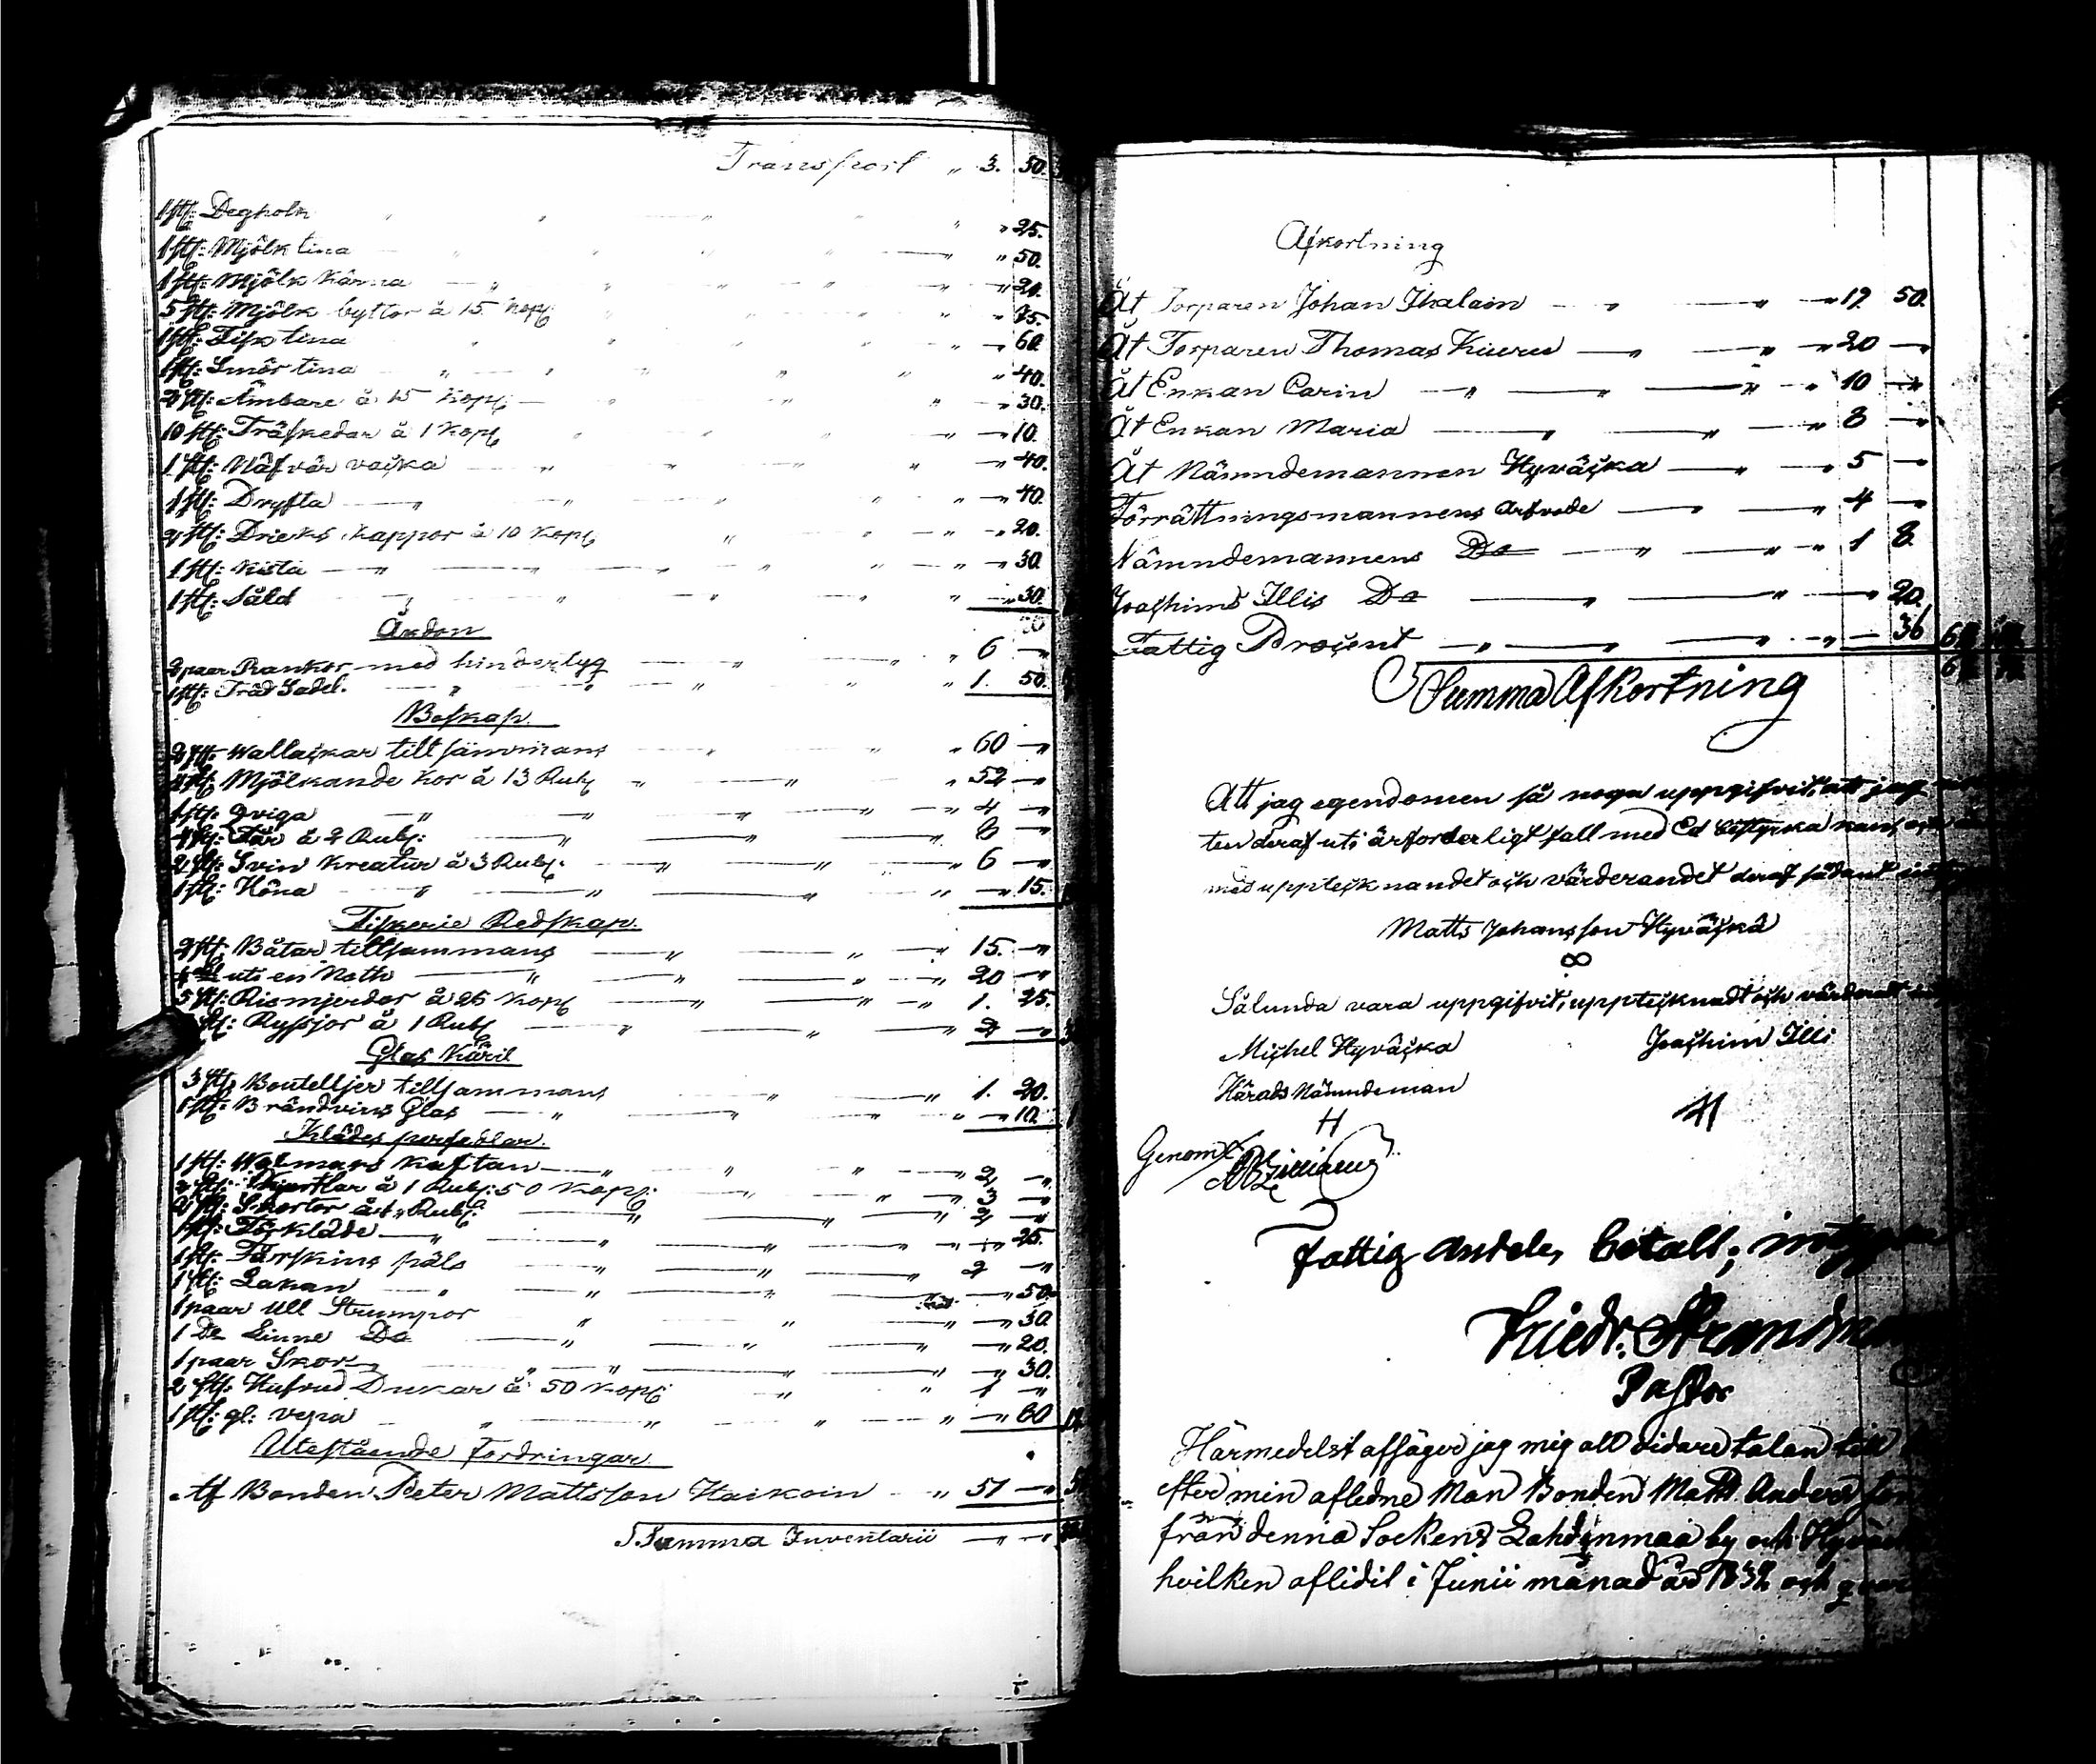 Transport " 3. 50.
1 st: Degholk " 25.
1 st: Mjölk tina " 50.
1 st: Mjölk Kärna " 20.
5 st: Mjölk byttor à 15 Kop: " 75.
1 st: Fisk tina " 60.
1 st: Smör tina " 40.
2 st: Ämbare à 15 Kop: " 30.
10 st: Träskedar à 1 Kop: " 10.
1 st: Näfvär " 40.
1 st: Dryfta " 40.
2 st: Dricks kappor à 10 Kop: " 20.
1 st: Kista " 30.
1 st: Såld " 30.
Åkdon
2 paar Bankor med hindertyg " 6 "
1 st: Träd Sadel. " 1. 50.
Boskap.
2 st: Wallackar tillsammans " 60 "
4 st: Mjölkande Kor à 13 Rub: " 52 "
1 st: Qviga " 4 "
4 st: Får à 2 Rub: " 8 "
2 st: Svin Kreatur à 3 Rub: " 6 "
1 st: Höna " 15.
Fiskerie Redskap.
2 st: Båtar tillsammans " 15. "
uti en Noth " 20 "
5 st: Rismjerdor à 25 Kop: " 1. 25.
st: Ryssjor à 1 Rub: " 2 "
Glas Käril
3 st: Boutelljer tillsammans " 1. 20.
1 st: Brändvins Glas " 10.
Klädes persedlar.
1 st: Walmars Kaftan " 2 "
2 st: Kjortlar à 1 Rub: 50 Kop: " 3 "
2 st: Skortor à 1 Rub: " 2 "
1 st: Förkläde " 25.
1 st: Fårskins päls " 2 "
1 st: Lakan " 50.
1 paar Ull Strumpor " 30
1 Do Linne Do " 20.
1 paar Skor " 30.
2 st: Hufvud Dukar à 50 Kop: " 1 "
1 st: gl: vepa " 60
Utestående Fordringar
Af Bonden Peter Mattsson Haikoin " 51 "
Summa Inventarii
Afkortning
Åt Torparen Johan Ikalain " 19 50.
Åt Torparen Thomas Kiuru " 20 "
Åt Enkan Carin " 10 "
Åt Enkan Maria " 8 "
Åt Nämndemannen Hyväckä " 5 "
Förrättningsmannens Arfvode " 4 "
Nämndemannens Do " 1 8.
Joachims Illis Do " 20.
Fattig Procent " 36
Summa Afkortning
Att jag egendomen så noga uppgifvit, att jag
ten deraf uti ärforderligt fall med Ed bestyrka kan, och
med upptecknandet och värderandet deraf sådant
Matts Johansson Hyväckä
Sålunda vara uppgifvit, upptecknadt och värderadt
Michel Hyväckä Joachim Illi
Härads Nämndeman
Genom
Fattig andelen betalt,
Friedr. Strandman
Pastor
Härmedelst afsäger jag mig all vidare talan till
efter min aflidne Man Bonden Matts Andersson
från denna Sockens Lahdenmaa by och
hvilken aflidit i Junii månad år 1832 och